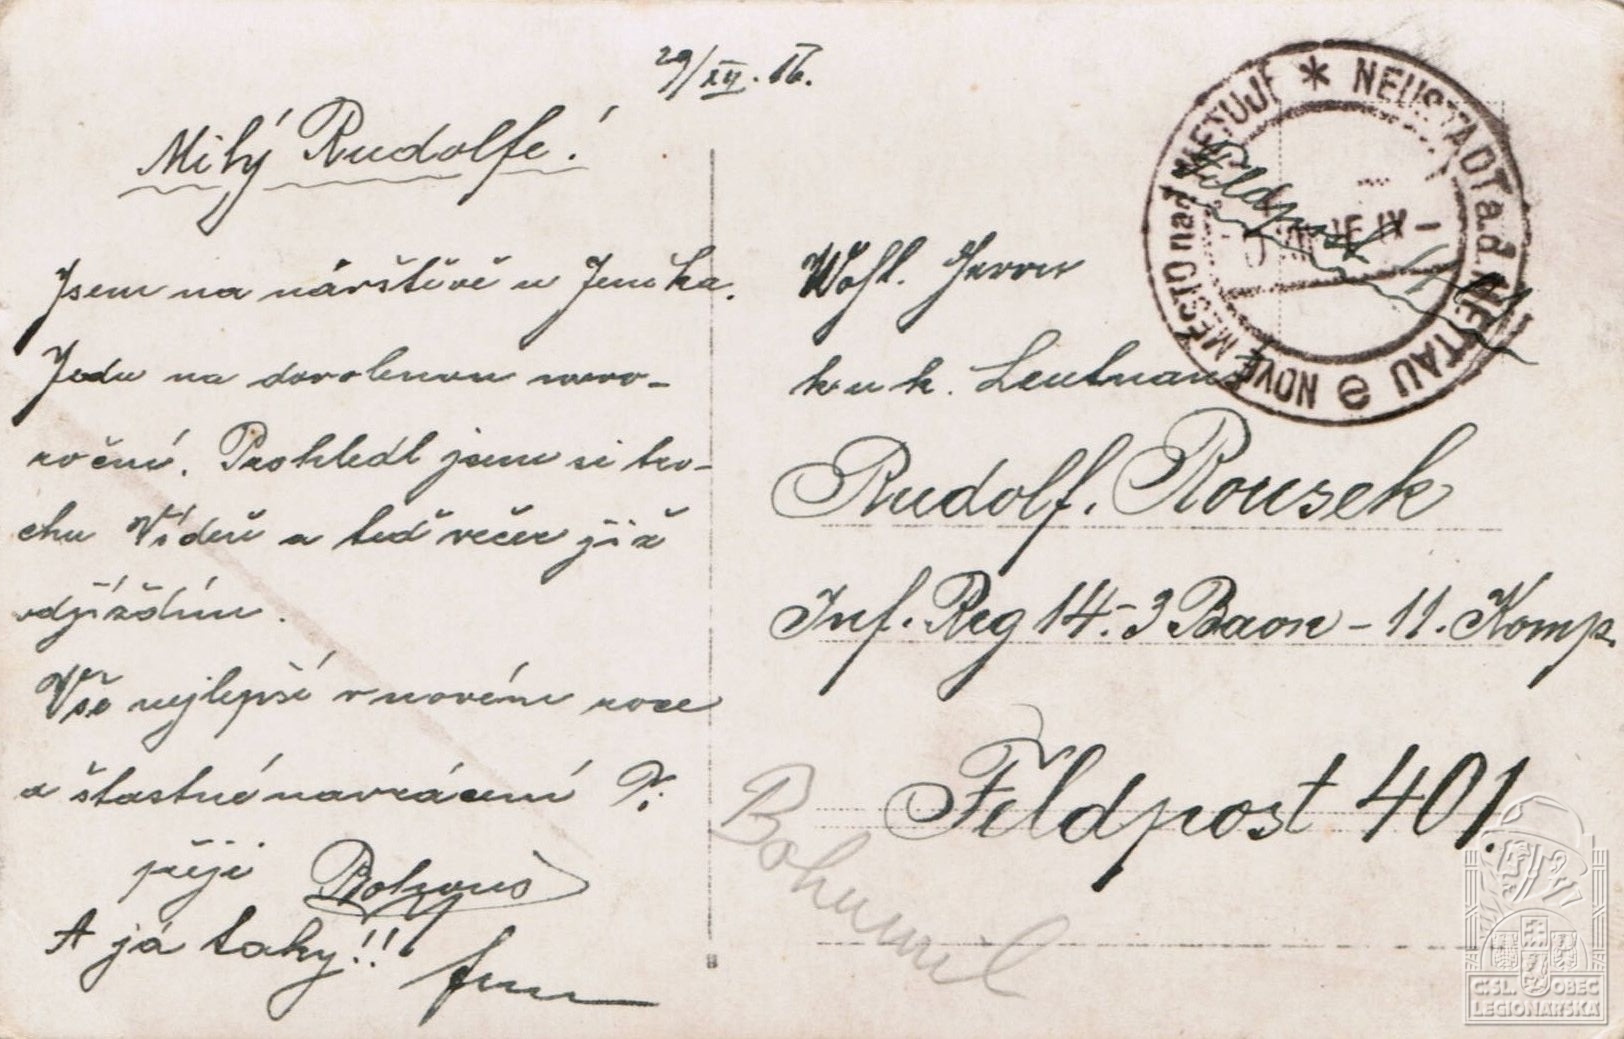 29/XII. 16.
Milý Rudolfe!
Jsem na návštěvě u Jeníka.
Jedu na dovolenou novo-
roční. Prohledl jsem si tro-
chu Vídeň a teď večer již
odjíždím.
Vše nejlepší v novém roce
a šťastné navrácení Ti
přeji Bohouš
A já taky!!
NEUSTADT a.d. METTAU e NOVÉ MĚSTO nad METUJÍ *
Feldpost
Wohl. Herrn
k u k. Leutnant
Rudolf. Rousek
Inf. Reg 14.-3 Baon - 11. Komp.
Feldpost 401.
Bohumil
Č.SL. OBEC
LEGIONÁŘSKÁ